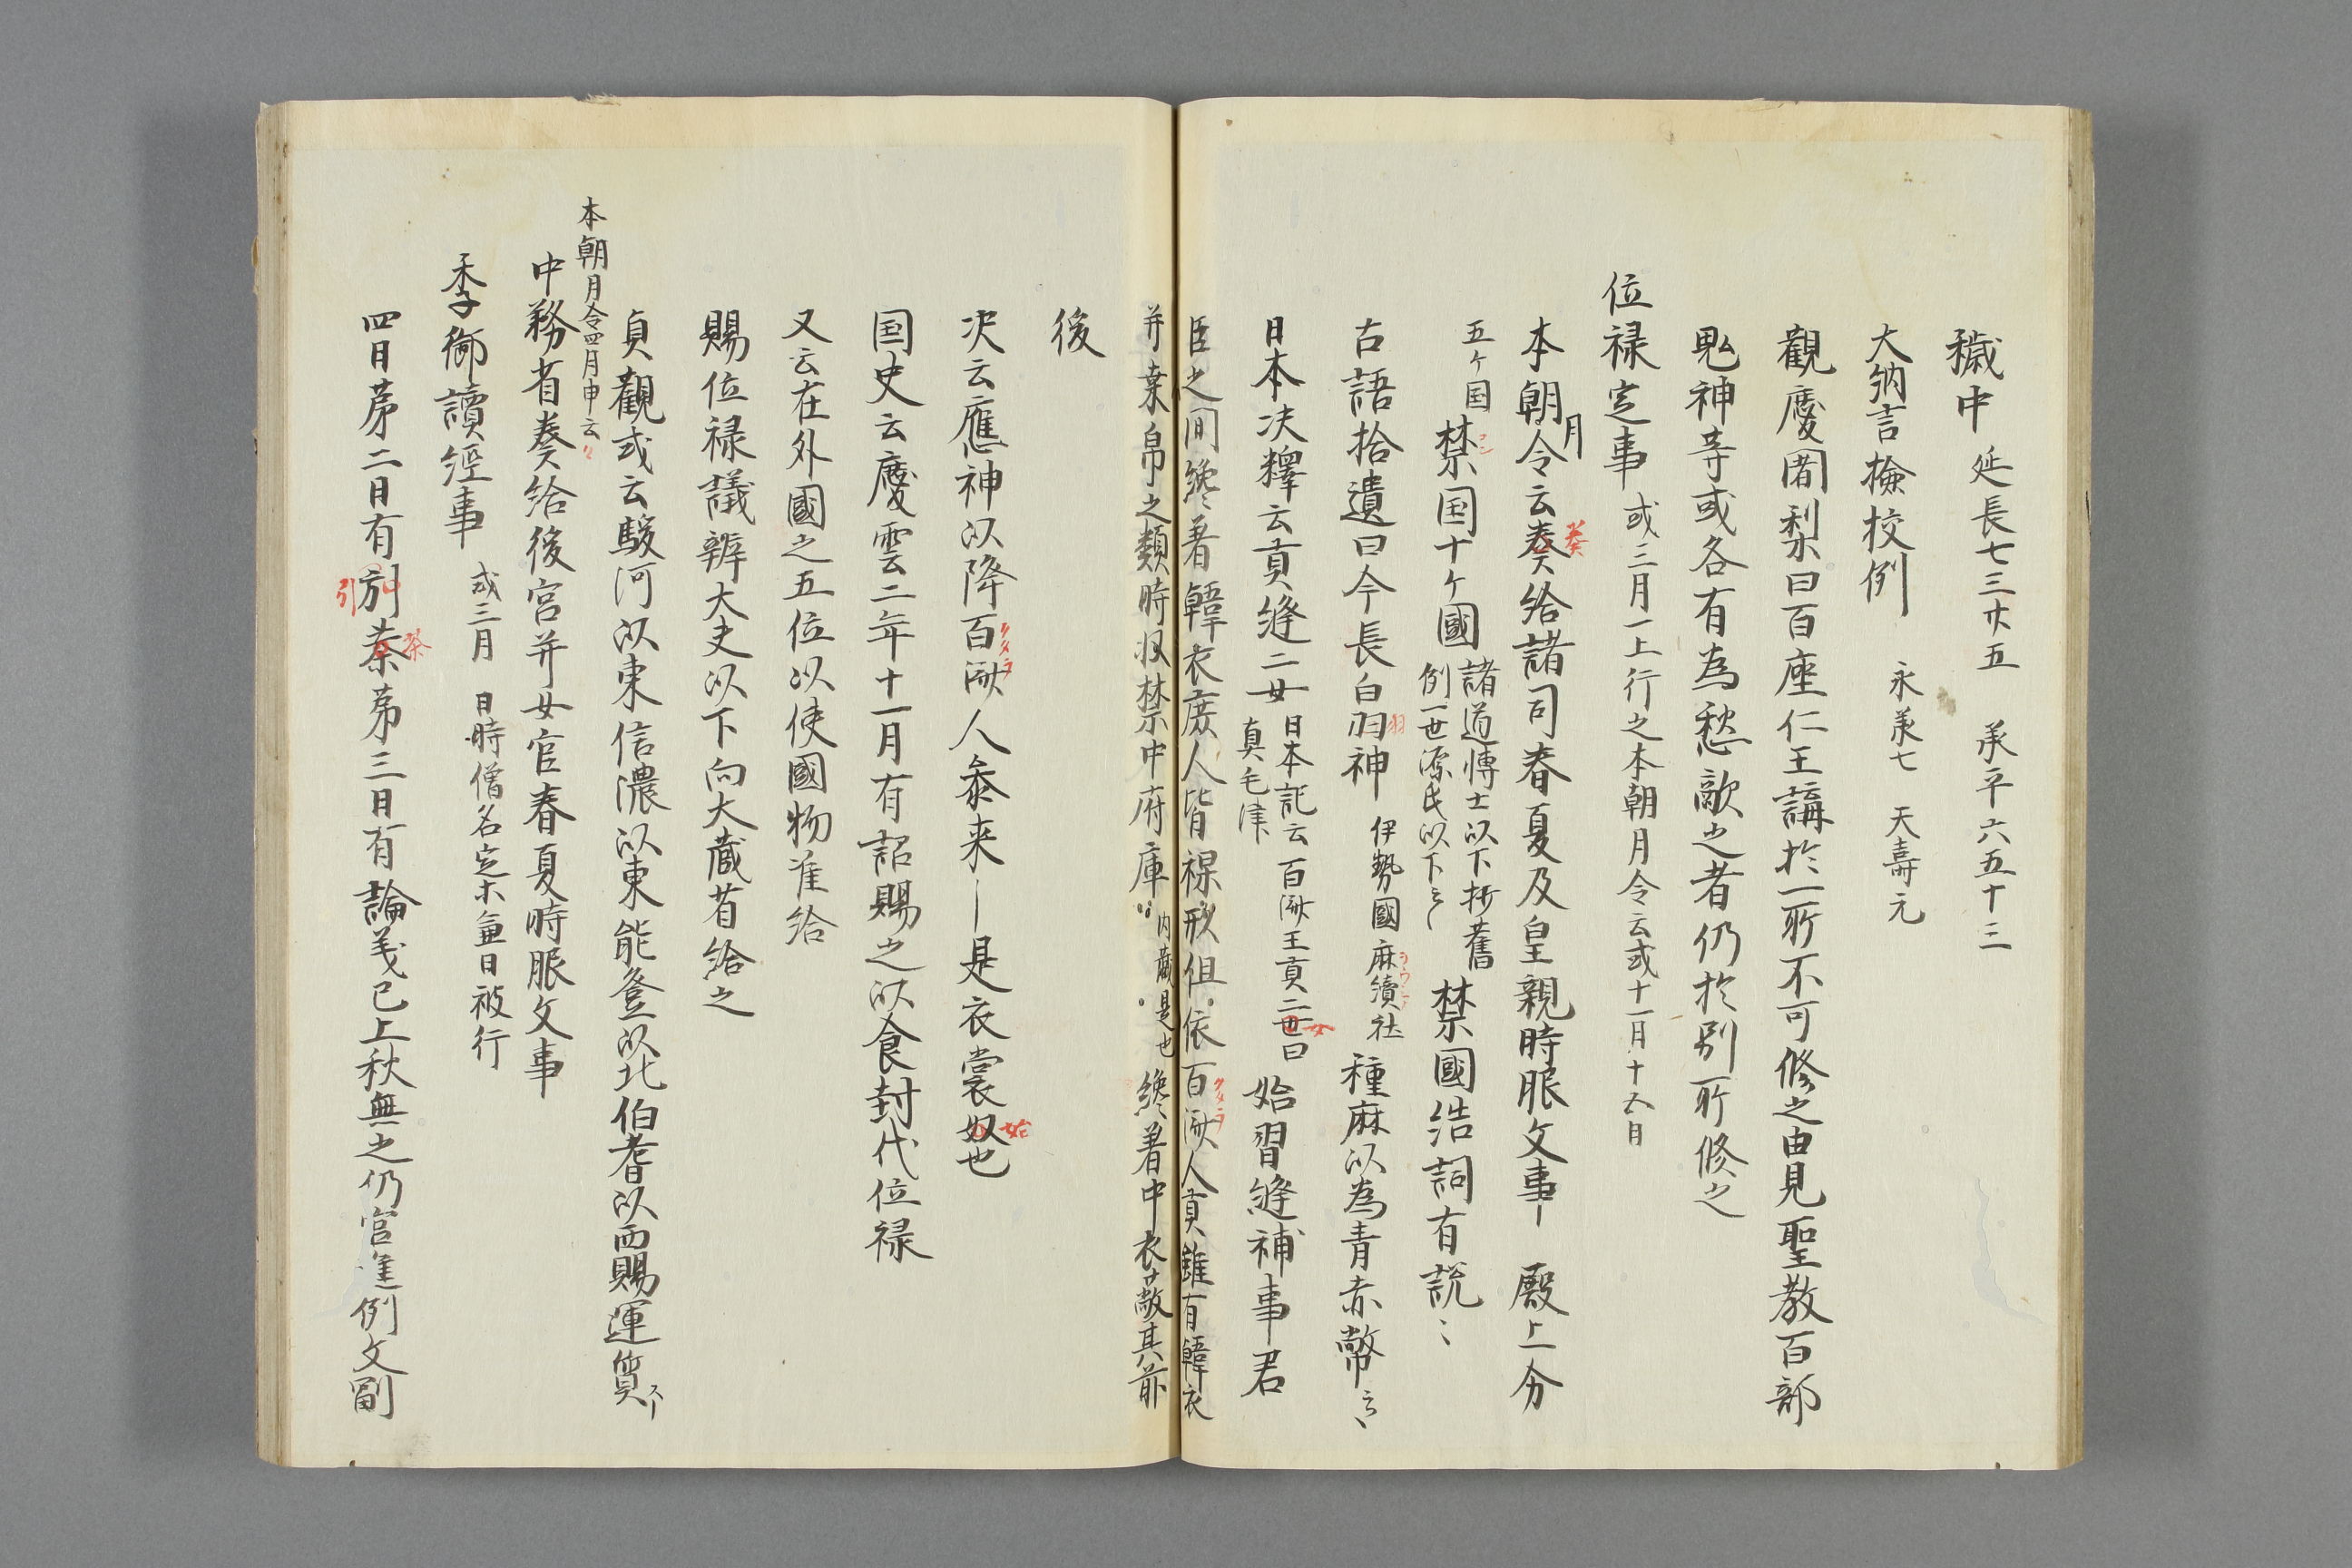 穢中 延長七三廿五 承平六五十三
大納言檢校例 永承七 天壽元
觀慶闍梨曰百座仁王講於一所不可修之由見聖教百部
鬼神等或各有為愁歒之者仍於別所修之
位禄定事 或三月一上行之本朝月令云或十一月十五日
本朝月令云奏給諸司春夏及皇親時服文事 殿上分
葵
五ケ国 禁国十ケ國 諸道博士以下抄舊
例一世源氏以下〻 禁國結詞有説〻
古語拾遺曰今長白羽神 伊勢國麻續社 種麻以為青赤幣云〻
羽
日本决釋云貢縫二女 日本記云百濟王貢二世曰
真毛津 始習縫補事君
女
臣之間纔著韓衣庶人皆裸形但依百濟人貢雖有韓衣
クタラ
并棄帛之類時収禁中府庫〻 内蔵是也 纔著中衣蔽其前
後
决云應神以降百濟人参来是衣裳奴也
クタラ
始
国史云慶雲二年十一月有詔賜之以食封代位禄
又云在外國之五位以使國物准給
賜位禄議辨大夫以下向大蔵省給之
貞觀或云駿河以東信濃以東能登以北伯耆以西賜運賃
本朝月令四月申云〻
中務省奏給後宮并女官春夏時服文事
季御讀經事 或三月 日時僧名定木兼日被行
四日第二日有別秦第三日有論義已上秋無之仍官進例文副
引
茶